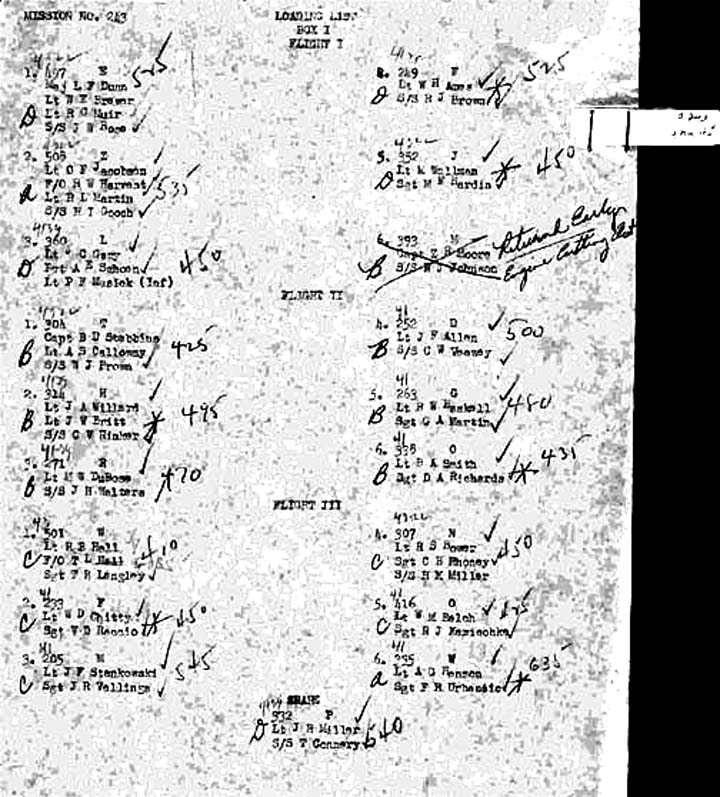 MISSION NO. 243
LOADING LIST
BOX I
FLIGHT I
1. 497 E 525
Maj L F Dunn
Lt W E Brewer
D Lt R G Muir
S/S J W Bose
4. 249 V 525
Lt W H Ames
D S/S R J Brown
2. 508 Z
Lt O F Jacobson
F/O H W Harvant 535
Lt B L Martin
S/S H T Gooch
5. 352 J 450
D Lt K Wellman
Sgt M F Hardin
3. 360 L 450
Lt C Gary
D Pvt A E Schoon
Lt P F Musick (Inf)
6. 393 M Returned Early
Capt Z R Moore Engine Cutting Out
B S/S W J Johnson
FLIGHT II
1. 304 T 425
Capt B D Stebbins
B Lt A S Calloway
S/S W J Brown
41
4. 252 D 500
Lt J F Allen
B S/S C W
2. 314 H 495
Lt J A Willard
B Lt J W Britt
S/S C V Rinker
41
5. 263 G 480
B Lt R W Haskell
Sgt G A Martin
3. 271 R 470
B Lt M W DuBose
S/S J H Walters
41
6. 338 O 435
B Lt B A Smith
Sgt D A Richards
FLIGHT III
1. 501 W 410
Lt R B Hall
C F/O T L Hall
Sgt F R Langley
4. 307 N 450
Lt R S Bower
C Sgt C B Rhoney
S/S H K Miller
41
2. 233 F 450
C Lt W D Chitty
Sgt V D
41
5. 416 O
C Lt W M Balch
Sgt R J
41
3. 205 M 545
Lt J F Stankowski
C Sgt J R Wallings
41
6. 235 W 635
a Lt A G Hanson
Sgt F R
SPARE
932 P
D Lt J R Miller 540
S/S T Connery